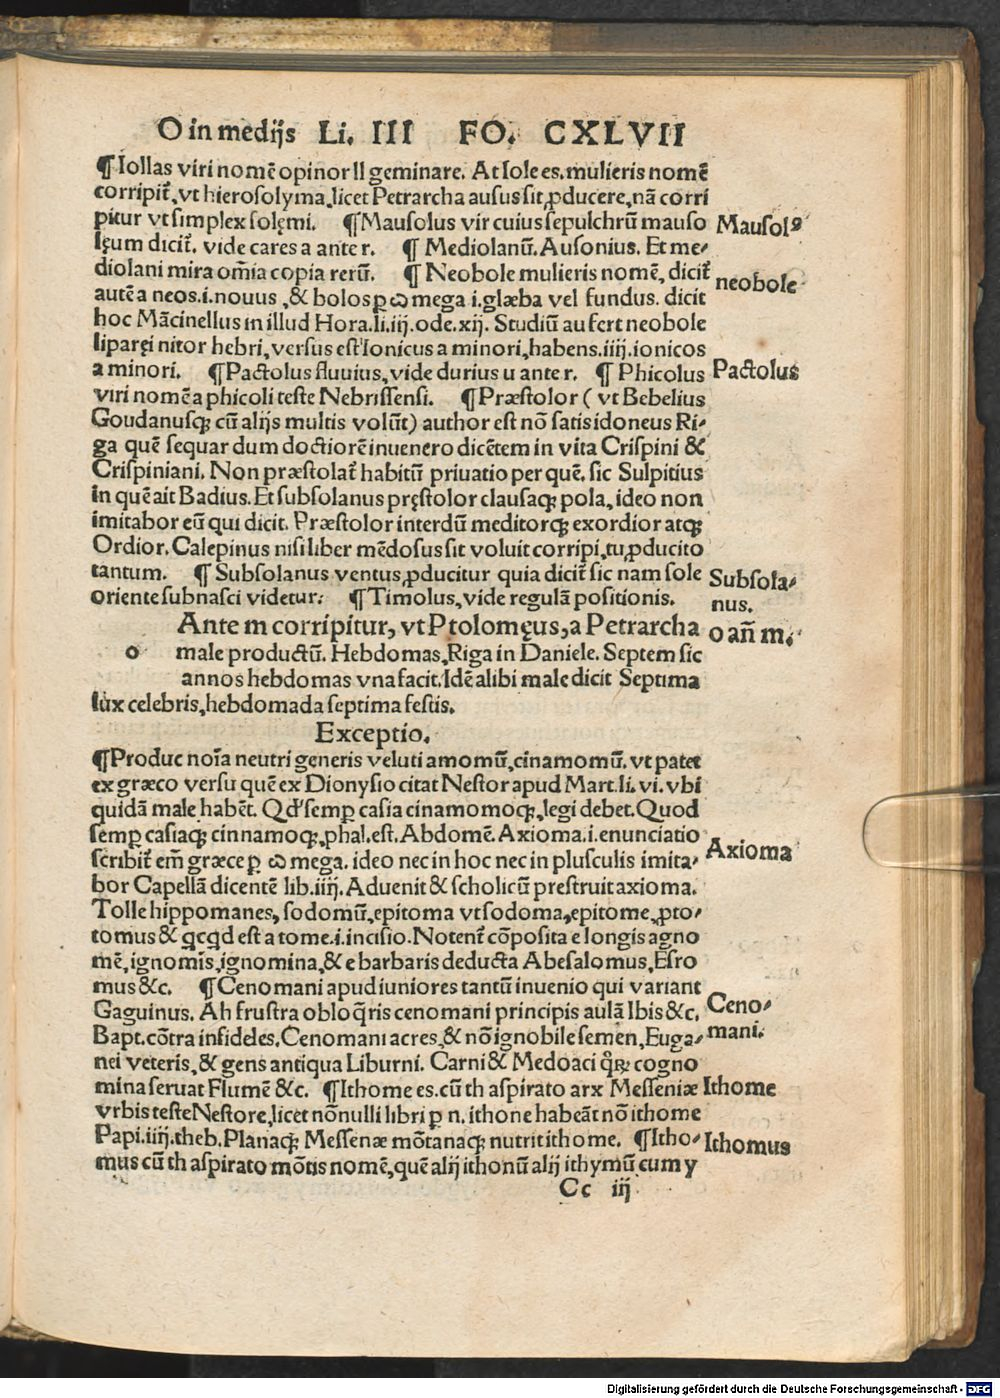 O in medijs Li. III FO. CXLVII
¶Iollas viri nomẽ opinor ll geminare. At Iole es. mulieris nomẽ
corripit̃, vt hierosolyma, licet Petrarcha ausus sit ꝓducere, nã corri
pitur vt simplex solęmi. ¶Mausolus vir cuius sepulchrũ mauso
Mausolꝰ
lęum dicit̃. vide cares a ante r. ¶ Mediolanũ. Ausonius. Et me⸗
diolani mira om̃ia copia rerũ. ¶ Neobole mulieris nomẽ, dicit̃
neobole
autẽ a neos .i. nouus , & bolos ꝑ ω mega i. glæba vel fundus. dicit
hoc Mãcinellus in illud Hora. li. iij. ode. xij. Studiũ aufert neobole
liparęi nitor hebri, versus est Ionicus a minori, habens .iiij. ionicos
a minori. ¶Pactolus fluuius, vide durius u ante r. ¶ Phicolus
Pactolus
viri nomẽ a phicoli teste Nebrissensi. ¶Præstolor ( vt Bebelius
Goudanusqꝫ cũ alijs multis volũt) author est nõ satis idoneus Ri⸗
ga quẽ sequar dum doctiorẽ inuenero dicẽtem in vita Crispini &
Crispiniani. Non præstolat̃ habitũ priuatio per quẽ. sic Sulpitius
in quẽ ait Badius. Et subsolanus pręstolor clausaqꝫ pola, ideo non
imitabor eũ qui dicit. Præstolor interdũ meditorqꝫ exordior atqꝫ
Ordior. Calepinus nisi liber mẽdosus sit voluit corripi, tu ꝓducito
tantum. ¶ Subsolanus ventus, ꝓducitur quia dicit̃ sic nam sole
Subsola⸗
oriente subnasci videtur: ¶Timolus, vide regulã positionis.
nus.
Ante m corripitur, vt Ptolomęus, a Petrarcha
o añ m.
o male productũ. Hebdomas, Riga in Daniele. Septem sic
annos hebdomas vna facit. Idẽ alibi male dicit Septima
lux celebris, hebdomada septima festis.
Exceptio.
¶Produc noĩa neutri generis veluti amomũ, cinamomũ. vt patet
ex græco versu quẽ ex Dionysio citat Nestor apud Mart. li. vi. vbi
quidã male habẽt. Qđ semꝑ casia cinamomoqꝫ, legi debet. Quod
semꝑ casiaqꝫ cinnamoqꝫ, phal. est. Abdomẽ. Axioma .i. enunciatio
Axioma
scribit̃ em̃ græce ꝑ ω mega. ideo nec in hoc nec in plusculis imita⸗
bor Capellã dicentẽ lib. iiij. Aduenit & scholicũ prestruit axioma.
Tolle hippomanes, sodomũ, epitoma vt sodoma, epitome, ꝓto⸗
tomus & qͥcqͥd est a tome .i. incisio. Notent̃ cõposita e longis agno
mẽ, ignomĩs, ignomina, & e barbaris deducta Abesalomus, Esro
mus &c. ¶Cenomani apud iuniores tantũ inuenio qui variant
Ceno⸗
Gaguinus. Ah frustra obloq̃ris cenomani principis aulã Ibis &c.
mani.
Bapt. cõtra infideles. Cenomani acres, & nõ ignobile semen, Euga⸗
nei veteris, & gens antiqua Liburni. Carni & Medoaci q̃ꝝ cogno
mina seruat Flumẽ &c. ¶Ithome es. cũ th aspirato arx Messeniæ
Ithome
vrbis teste Nestore, licet nõnulli libri ꝑ n. ithone habeãt nõ ithome
Papi. iiij. theb. Planaqꝫ Messenæ mõtanaqꝫ nutrit ithome. ¶Itho⸗
Ithomus
mus cũ th aspirato mõtis nomẽ, quẽ alij ithonũ alij ithymũ cum y
Cc iij
Digitalisierung gefördert durch die Deutsche Forschungsgemeinschaft - DFG